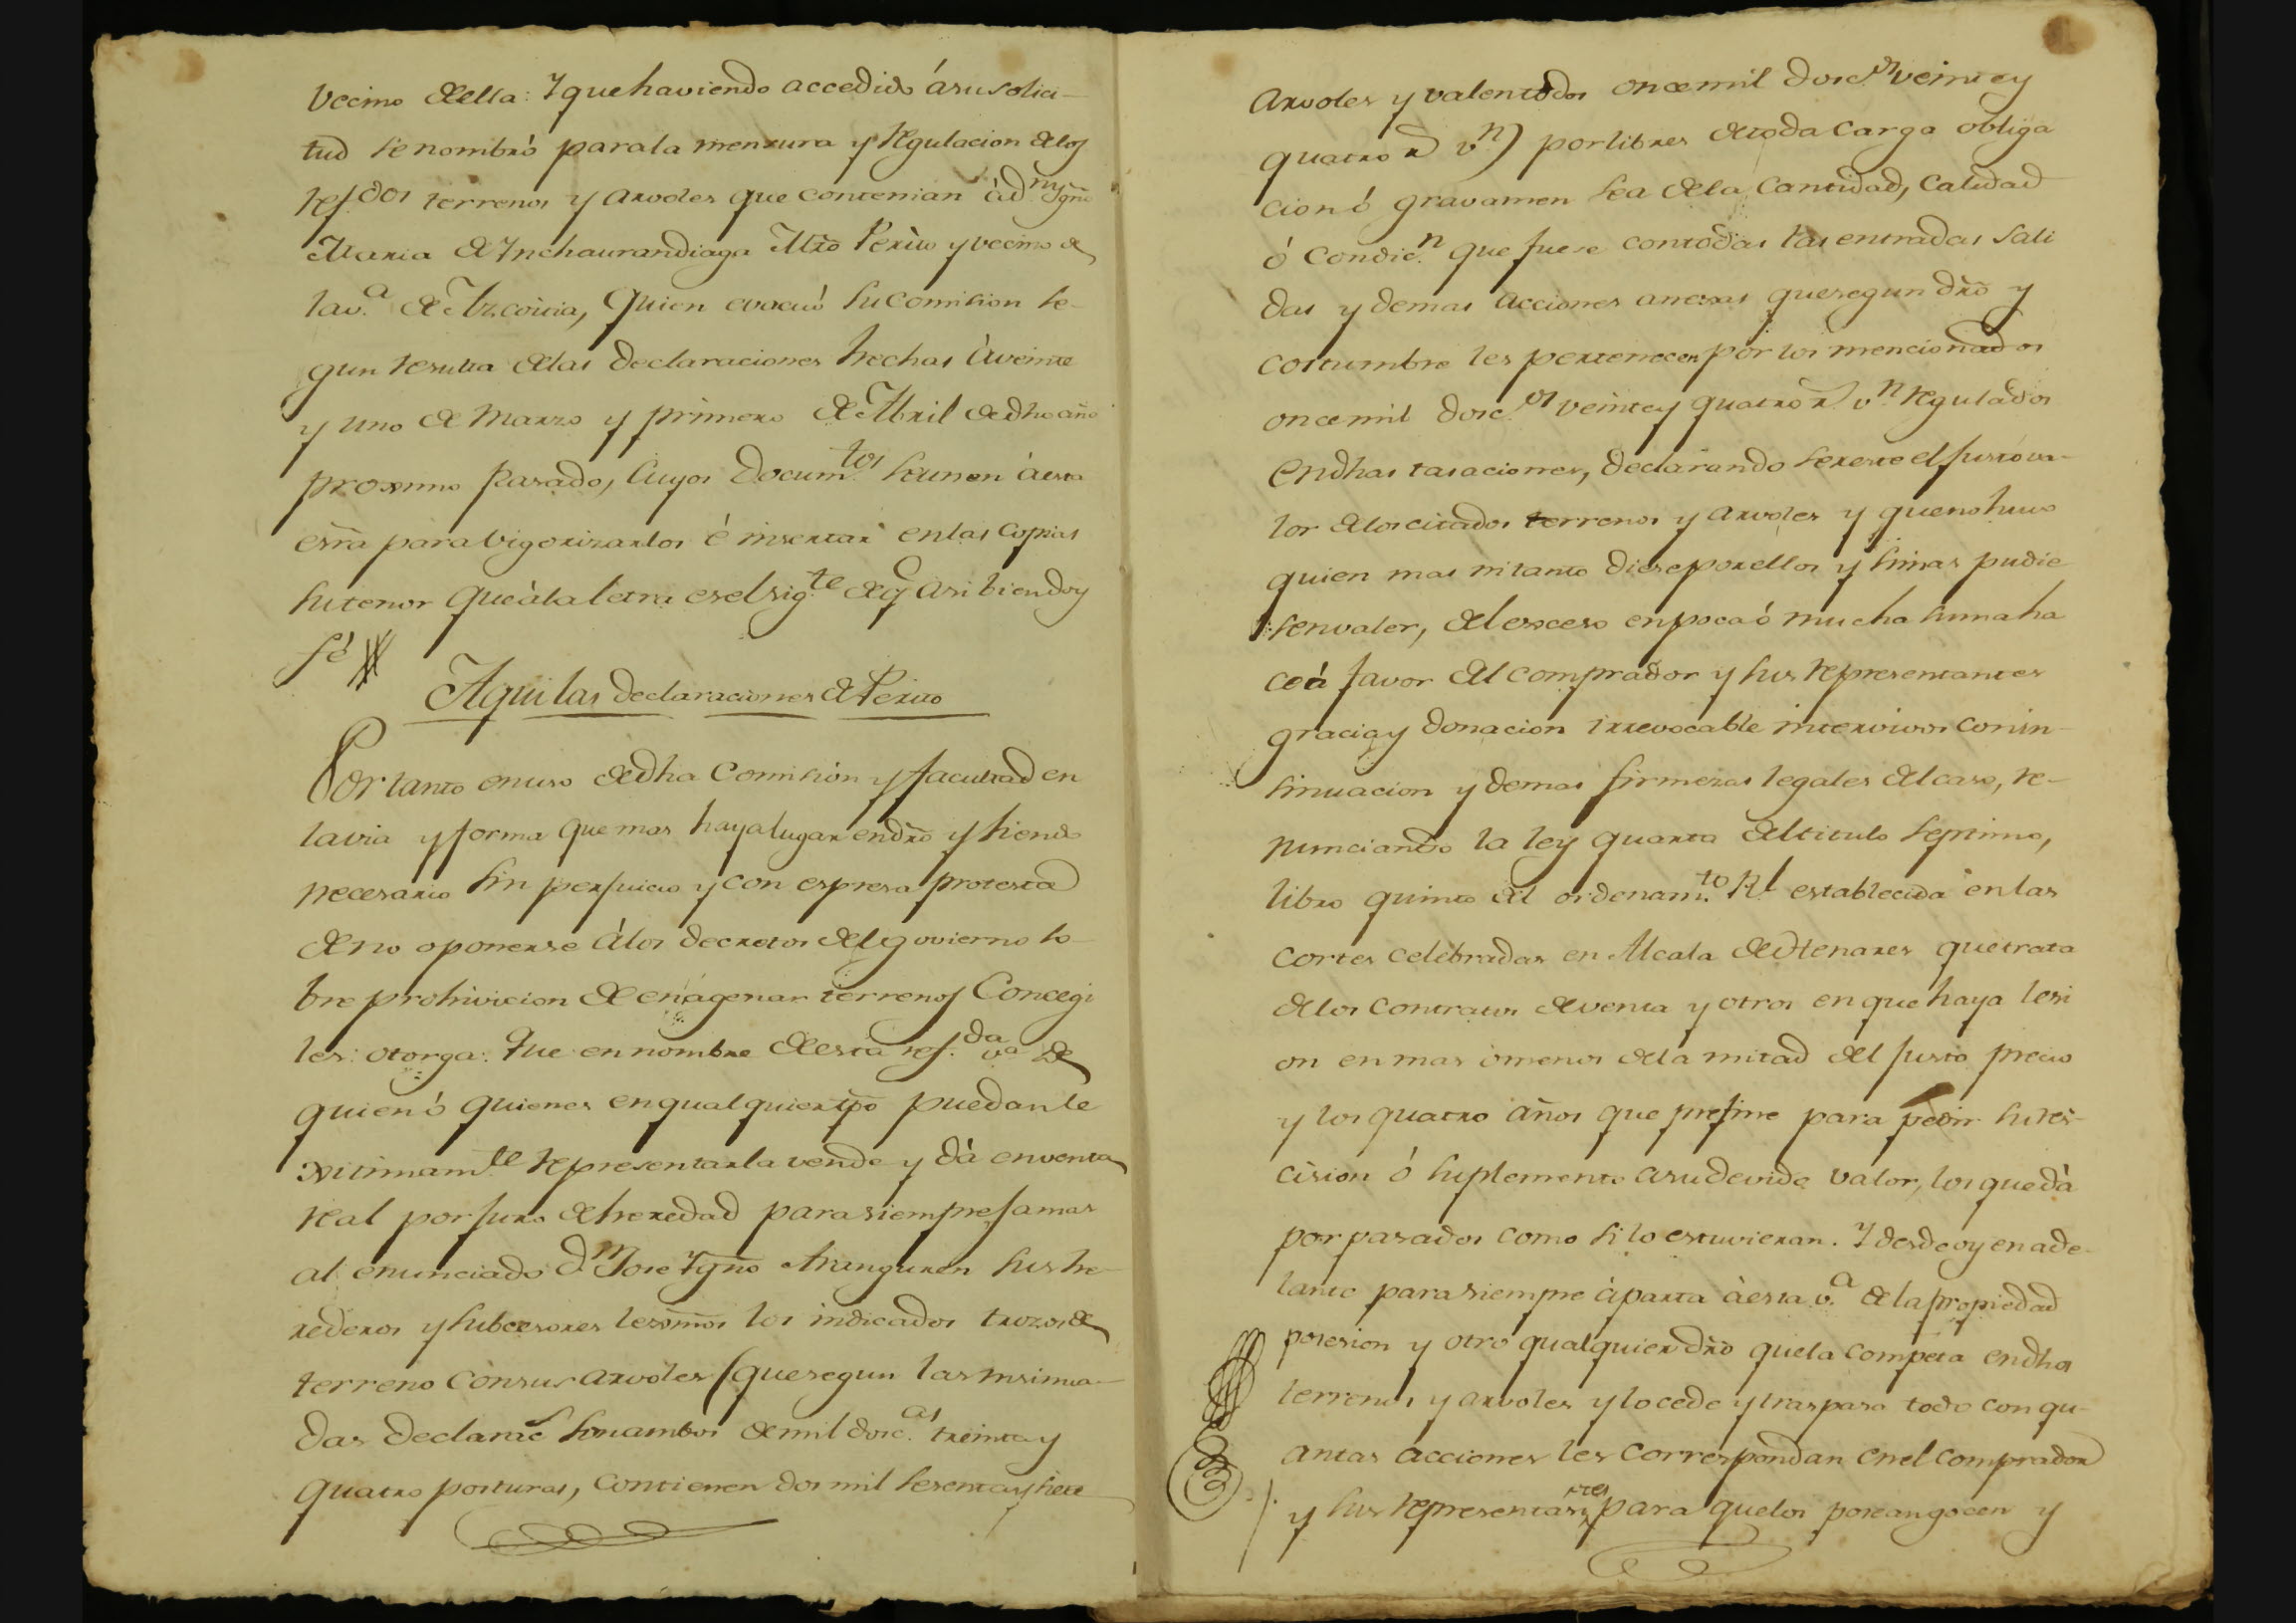 Vecino de ella: Y que haviendo accedido á su solici-
tud se nombró para la mensura y regulacion de los
ref.dos terrenos y arvoles que contenian á d.n Ygn.o
Maria de Ynchaurandiaga Mro Perito y vecino de
la v.a de Azcoitia, Quien evacuó su comision se-
gun resulta de las declaraciones hechas á veinte
y uno de Marzo y primero de Abril de dho año
proximo Pasado, Cuyos Docum.tos se unen á esta
esrã para vigorizarlos é insertar en las copias
su tenor que á la letra es el sig.te de q̃ asi bien doy
fé
Aqui las declaraciones de Perito
Por tanto en uso de dha Comision y facultad en
la via y forma que mas haya lugar en dro y siendo
necesario sin perjuicio y con espresa protesta
de no oponerse á los decretos del govierno so-
bre prohivicion de enagenar terrenos Concegi
les: otorga: Que en nombre de esta ref.da v.a de
quien ó quienes en qualquier tp̃o puedan le
xitimam.te representarla vende y dá en venta
real por juro de heredad para siempre jamas
al enunciado d.n Jose Ygño Aranguren sus he-
rederos y subcesores lexm̃os los indicados trozos de
terreno con sus arvoles (que segun las insinua-
das declarac.s son ambos de mil dosc.as treinta y
quatro posturas, contienen dos mil sesenta y siete
arvoles y valen todos once mil dosc.os veinte y
quatro r.s v.n) por libres de toda carga obliga
cion ó gravamen sea de la Cantidad, Calidad
ó Condic.n que fuese con todas las entradas sali
das y demas acciones anexas que segun dro y
costumbre les pertenecen por los mencionados
once mil dosc.os veinte y quatro r.s v.n regulados
en dhas tasaciones, declarando ser este el justo va-
lor de los citados terrenos y arvoles y que no huvo
quien mas ni tanto diese por ellos y si mas pudie
sen valer, del exceso en poca ó mucha suma ha
ce á favor del comprador y sus representantes
gracia y donacion irrevocable intervivos con in-
sinuacion y demas firmezas legales del caso, re-
nunciando la ley quarta del titulo septimo,
libro quinto del ordenam.to R.l establecida en las
cortes celebradas en Alcala de Henares que trata
de los contratos de venta y otros en que haya lesi
on en mas ó menos de la mitad del justo precio
y los quatro años que prefine para pedir su res-
cision ó suplemento a su devido valor, los que dá
por pasados como si lo estuvieran. Y desde oy en ade-
lante para siempre aparta á esta v.a de la propiedad
posesion y otro qualquier dro que la competa en dhos
terrenos y arvoles y lo cede y traspasa todo con qu-
antas acciones les correspondan en el comprador
y sus representantes para que los posean gocen y